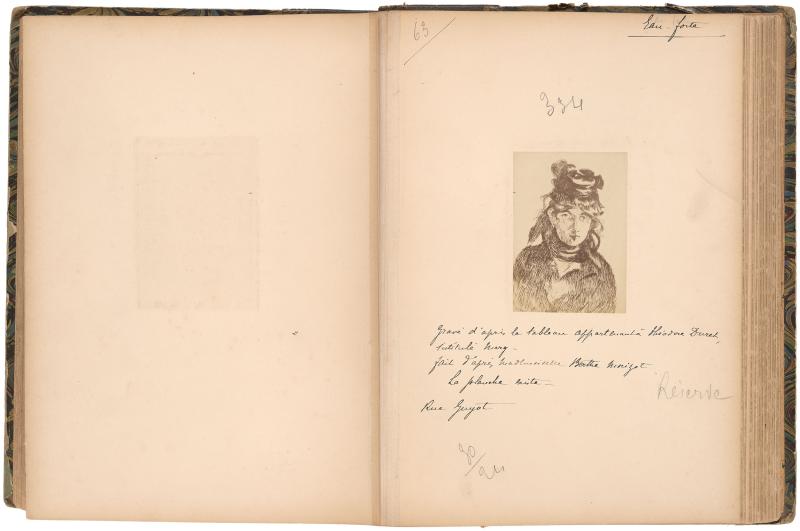 63
Eau-forte
334
Gravé d'après le tableau appartenant à Théodore Duret,
intitulé
fait d'après Mademoiselle Berthe Morizot
La planche existe
Réserve
Rue Guyot
30/24